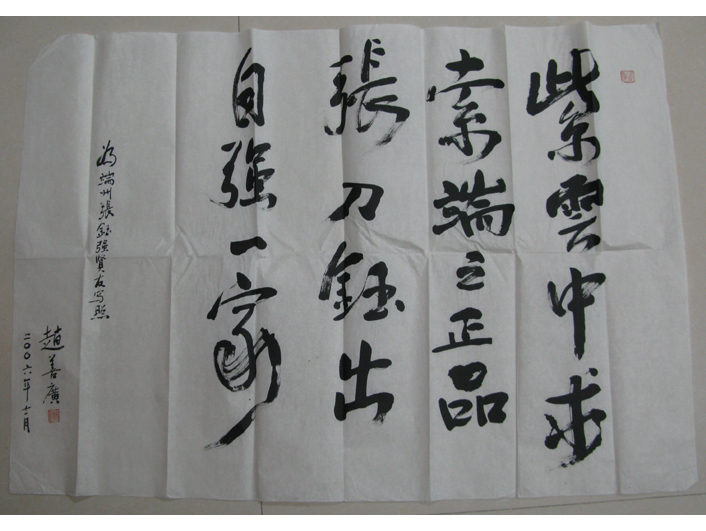 紫雲中求
索端之正品
張刀鈺出
自強一家
為端州張鈺强賢友写照
趙善廣
二〇〇六年十一月